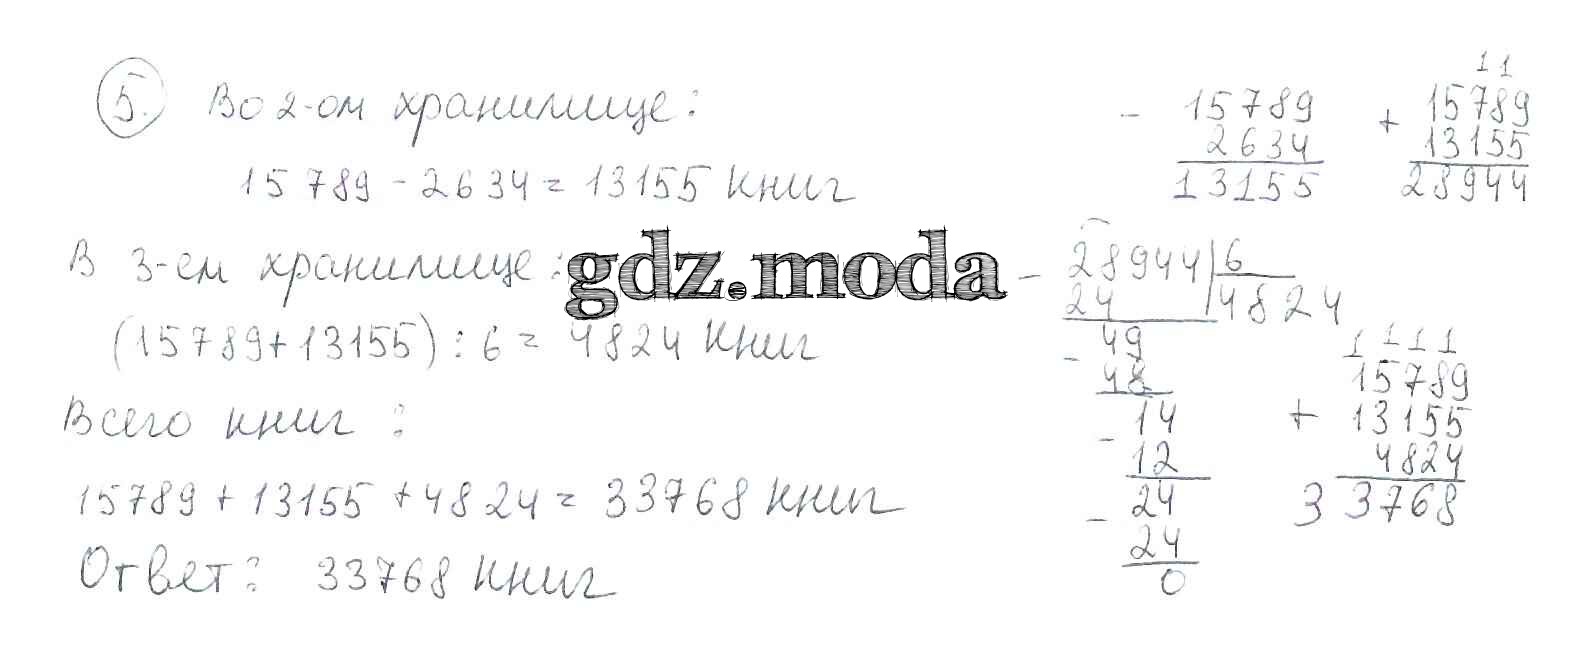 5. Во 2-ом хранилище:
15789 - 2634 = 13155 книг
В 3-ем хранилище:
(15789 + 13155) : 6 = 4824 книг
Всего книг:
15789 + 13155 + 4824 = 33768 книг
Ответ: 33768 книг
gdz.moda
- 15789
2634
13155
1 1
+ 15789
13155
28944
- 28944 | 6
24 | 4824
- 49
48
- 14
12
- 24
24
0
1 1 1 1
15789
+ 13155
4824
33768